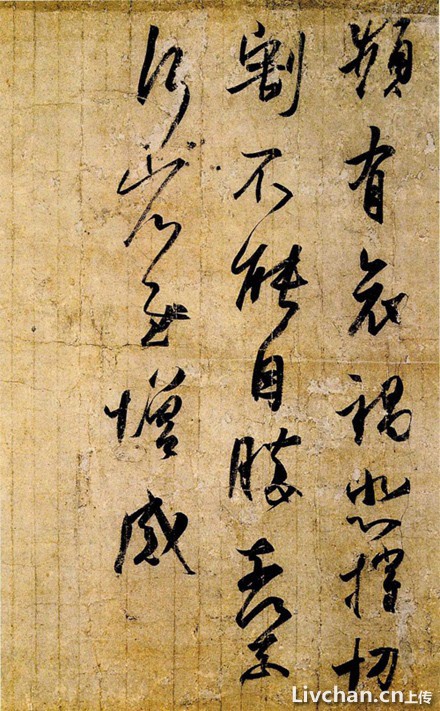 頻有哀禍悲摧切
割不能自勝奈何奈
何省慰增感
Livchan.cn上传